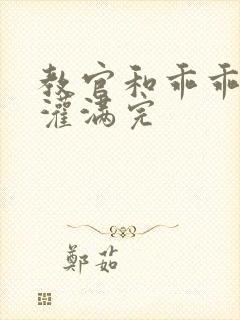 教官和乖乖
灌满完
鄭茹